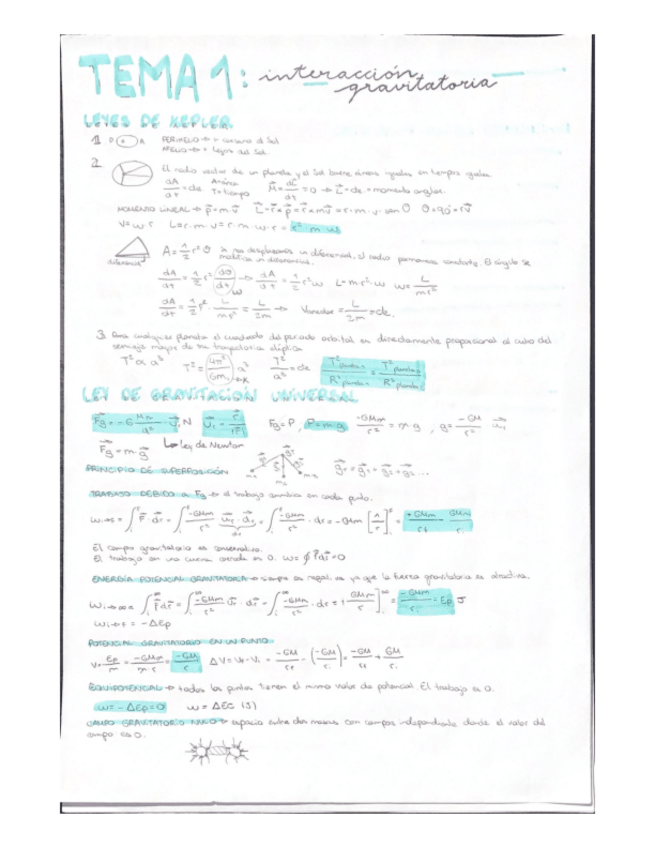 TEMA 1: interacción
gravitatoria
LEYES DE KEPLER
1 P A PERIHELIO → + cercano al Sol
AFELIO → + lejos del Sol.
2
El radio vector de un planeta y el Sol barre áreas iguales en tiempos iguales
dA/dt = cte. A=área T=tiempo M = dL/dt = 0 → L = cte. = momento angular.
MOMENTO LINEAL → p = m·v L = r × p = r × mv = r·m·v·sen θ θ=90º = rv
v = w·r L = r·m·v = r·m·w·r = r²·m·w
diferencial
A = 1/2 r² θ Si nos desplazamos un diferencial, el radio permanece constante. El ángulo se
modifica un diferencial.
dA/dt = 1/2 r² dθ/dt w → dA/dt = 1/2 r² w L = m·r²·w w = L/mr²
dA/dt = 1/2 r² · L/mr² = L/2m → Vareolar = L/2m = cte.
3. Para cualquier planeta el cuadrado del periodo orbital es directamente proporcional al cubo del
semieje mayor de su trayectoria elíptica
T² ∝ a³ T² = (4π²/Gm) a³ T²/a³ = cte T² planeta 1/R³ planeta 1 = T² planeta 2/R³ planeta 2
LEY DE GRAVITACIÓN UNIVERSAL
Fg = -G Mm/d² · u, N u = r/|r| Fg = P, P = m·g -GMm/r² = m·g, g = -GM/r² · u
Fg = m·g → Ley de Newton
PRINCIPIO DE SUPERPOSICIÓN g = g₁ + g₂ + g₃ ...
TRABAJO DEBIDO A Fg → el trabajo cambia en cada punto.
El campo gravitatorio es conservativo.
El trabajo en una curva cerrada es 0. W = ∮ F dr = 0
ENERGÍA POTENCIAL GRAVITATORIA → siempre es negativa ya que la fuerza gravitatoria es atractiva.
W i→f = -ΔEp
POTENCIAL GRAVITATORIO EN UN PUNTO
V = Ep/m = -GMm/m·r = -GM/r ΔV = Vf - Vi = -GM/r - (-GM/r) = -GM/rf + GM/ri
EQUIPOTENCIAL → todos los puntos tienen el mismo valor de potencial. El trabajo es 0.
w = -ΔEp = 0 w = ΔEc (J)
CAMPO GRAVITATORIO NULO → espacio entre dos masas con campos independiente donde el valor del
campo es 0.